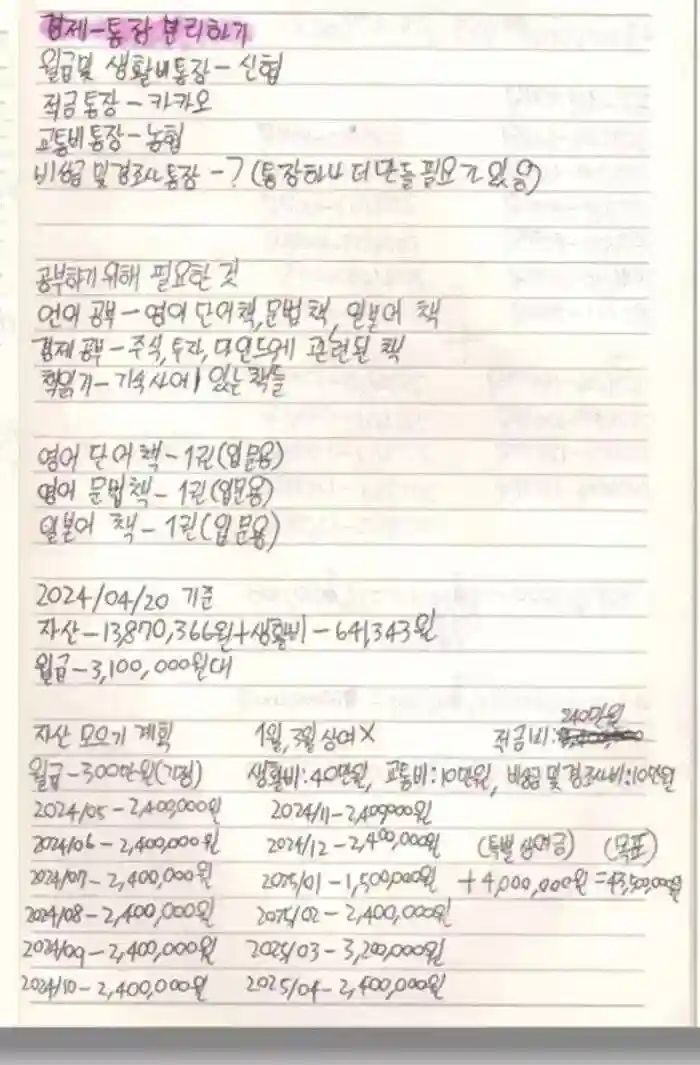 경제-통장 분리하기
월급및 생활비통장-신협
적금통장-카카오
교통비통장-농협
비상금 및 경조사통장-? (통장하나 더 만들 필요가 있음)
공부하기 위해 필요한 것
언어 공부-영어 단어책, 문법책, 일본어 책
경제공부-주식, 투자, 마인드에 관련된 책
책읽기-기숙사에 있는 책들
영어 단어책-1권(입문용)
영어 문법책-1권(입문용)
일본어 책-1권(입문용)
2024/04/20 기준
자산-13,870,366원+생활비-641,343원
월급-3,100,000원대
자산 모으기 계획 1월, 3월 상여X 적금비: 240만원
월급-300만원(가정) 생활비:40만원, 교통비:10만원, 비상금 및 경조사비:10만원
2024/05-2,400,000원 2024/11-2,400,000원
2024/06-2,400,000원 2024/12-2,400,000원 (특별 상여금) (목표)
2024/07-2,400,000원 2025/01-1,500,000원 +4,000,000원=43,500,000원
2024/08-2,400,000원 2025/02-2,400,000원
2024/09-2,400,000원 2025/03-3,200,000원
2024/10-2,400,000원 2025/04-2,400,000원